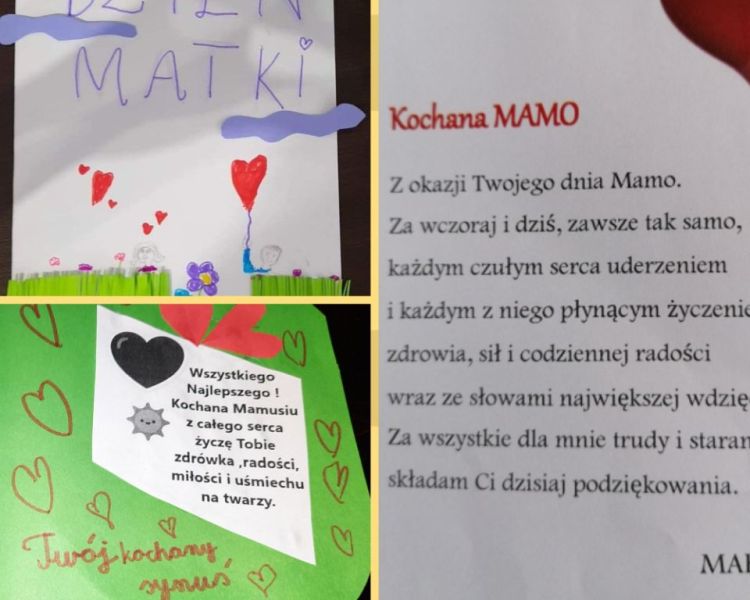 DZIEŃ
MATKI
Wszystkiego
Najlepszego !
Kochana Mamusiu
z całego serca
życzę Tobie
zdrówka ,radości,
miłości i uśmiechu
na twarzy.
Twój kochany
synuś
Kochana MAMO
Z okazji Twojego dnia Mamo.
Za wczoraj i dziś, zawsze tak samo,
każdym czułym serca uderzeniem
i każdym z niego płynącym
zdrowia, sił i codziennej radości
wraz ze słowami największej
Za wszystkie dla mnie trudy i
składam Ci dzisiaj podziękowania.